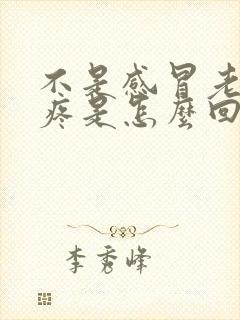 不是感冒老
疼是怎麼回
李秀峰